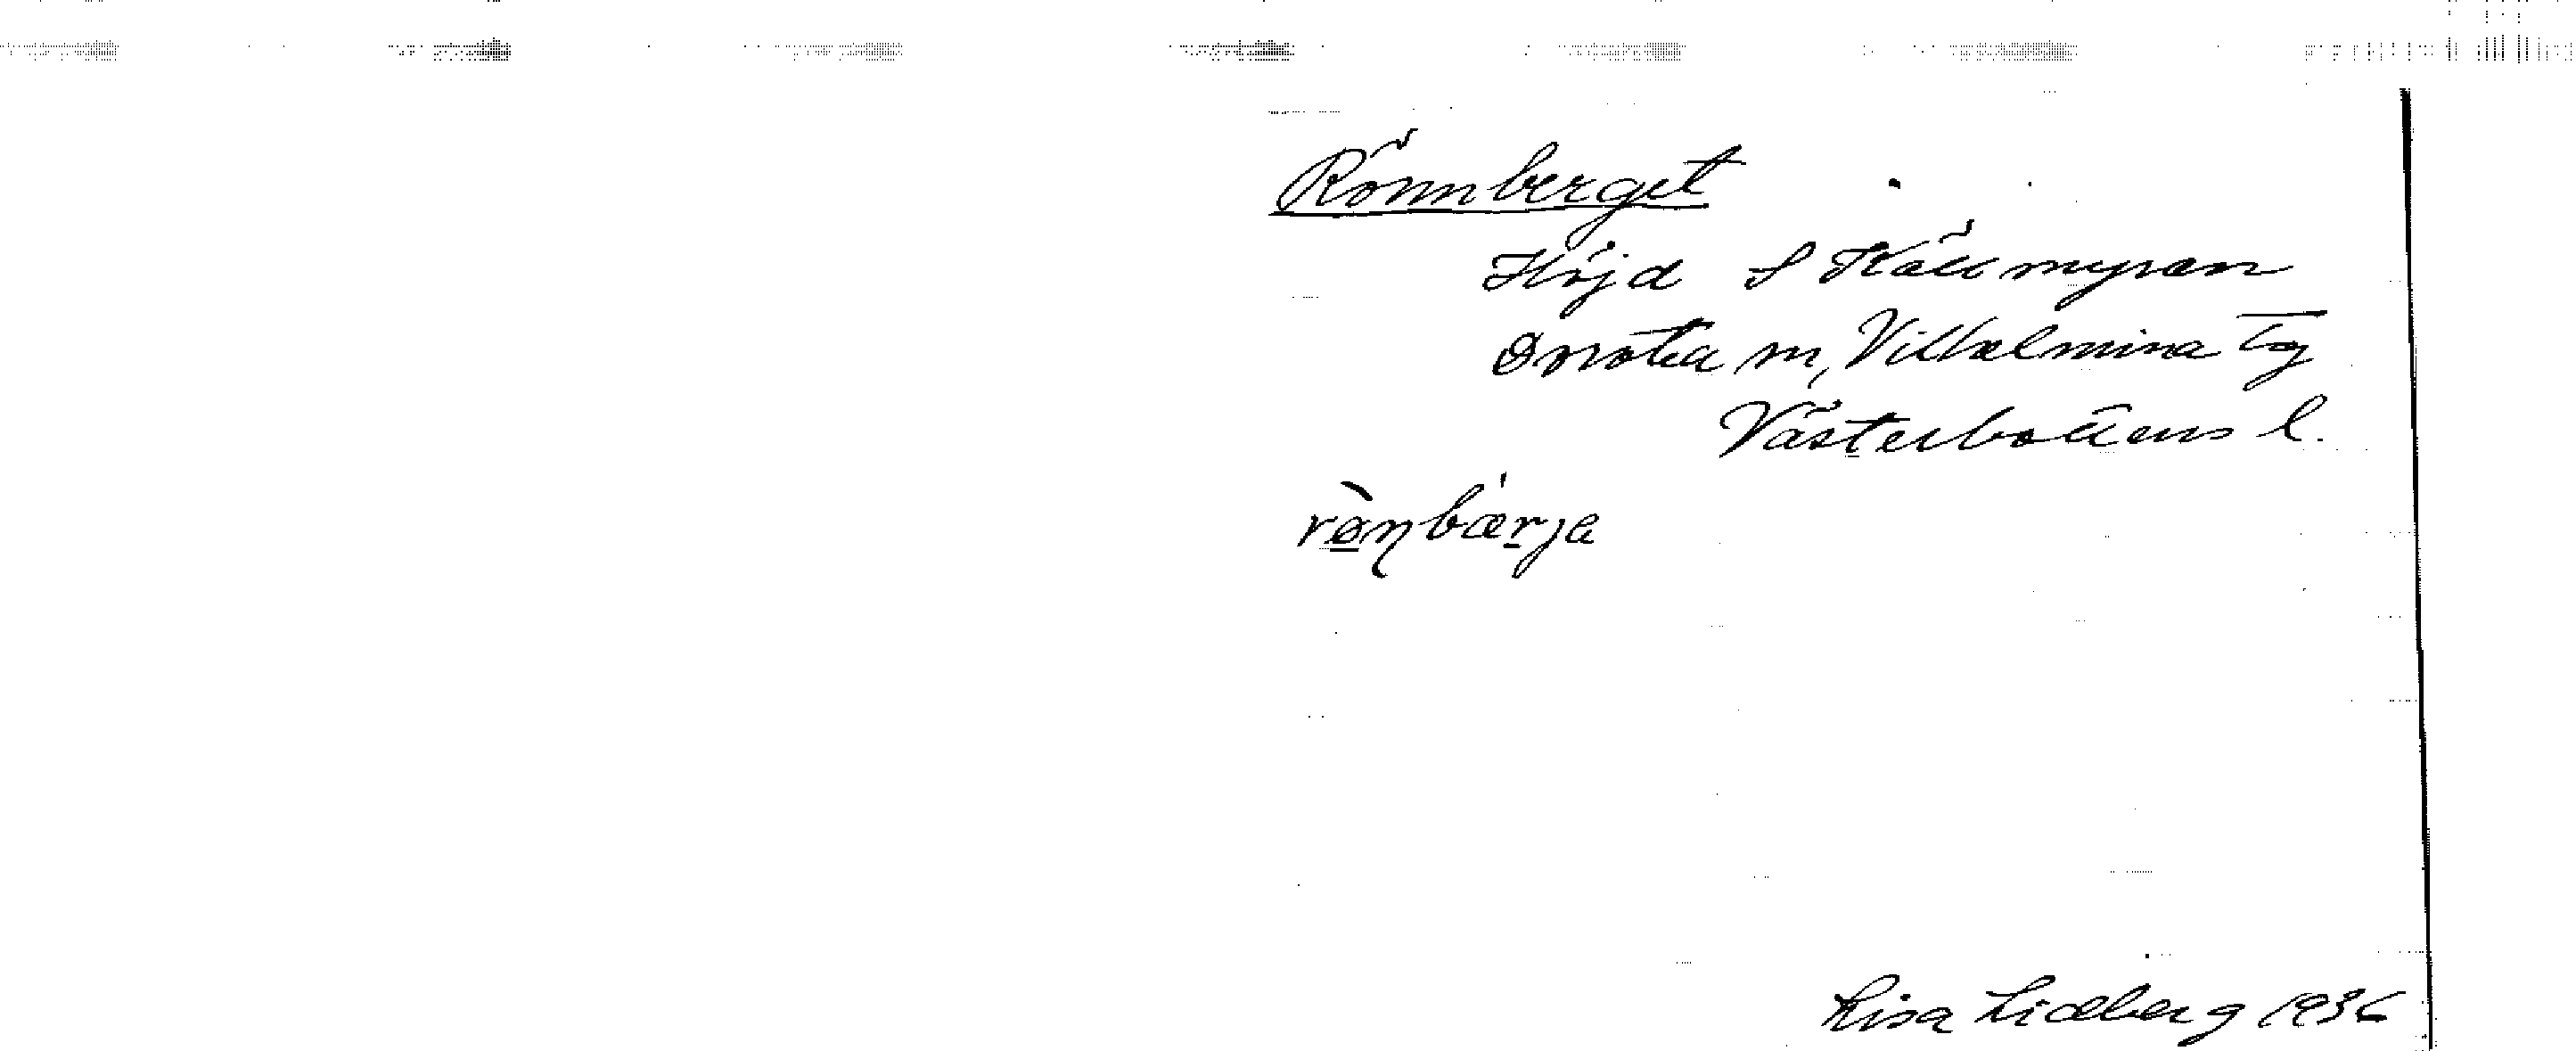 Rönnberget
Höjd S Källmyran
Dorotea sn, Vilhelmina tg
Västerbottens l.
rø̀ŋbær'ja
Lisa Lidberg 1936